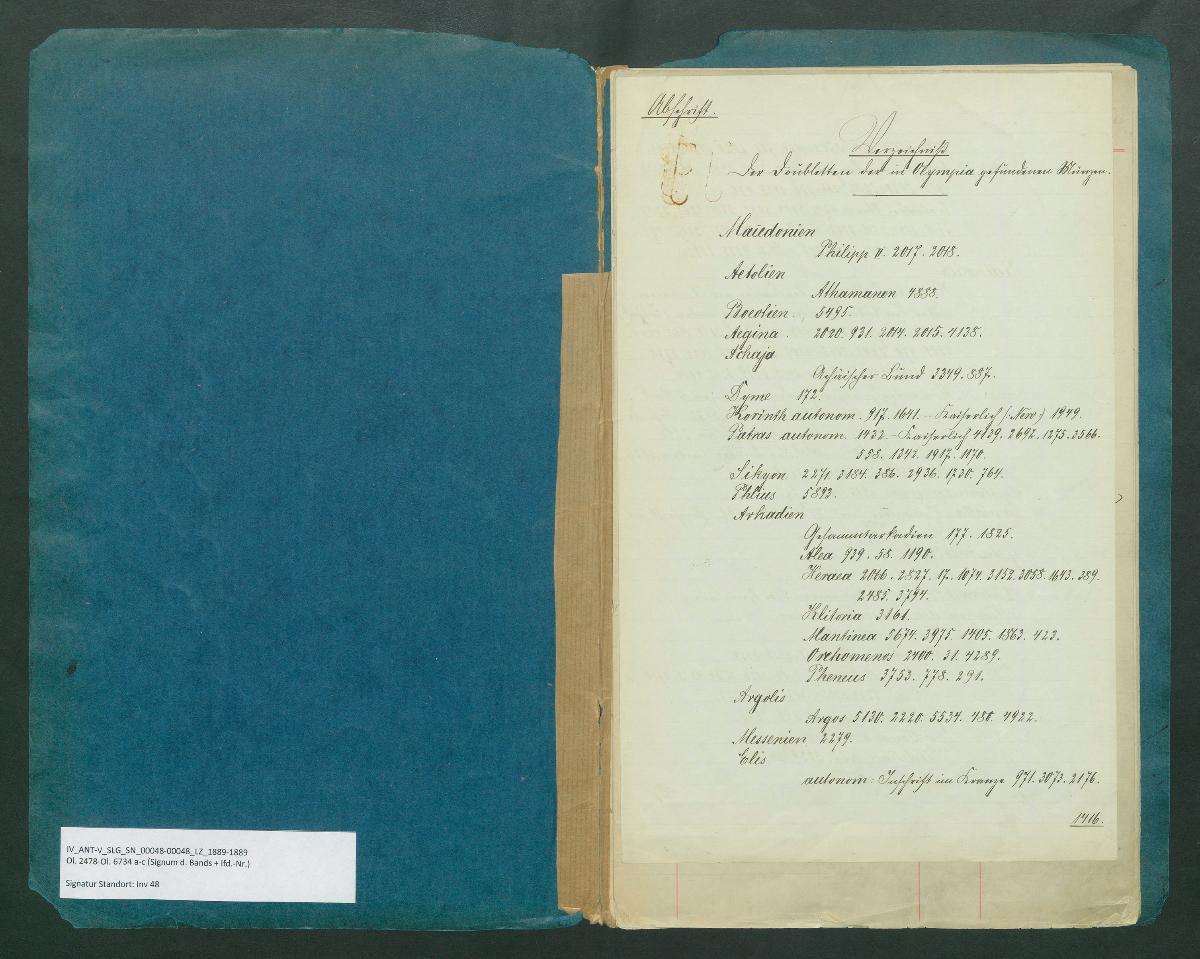 Abschrift.
Verzeichniß
Der Doubletten der in Olympia gefundenen Münzen.
Macedonien
Philipp II. 2017. 2018.
Aetolien
Athamanen 4888.
Boeotien. 5495.
Aegina. 2020. 931. 2014. 2015. 4138.
Achaja
Achäischer Bund 3349. 887.
Dyme 172.
Korinth autonom. 917. 1641. – Kaiserlich (: Nero :) 1949.
Patras autonom. 1432. – Kaiserlich 4139. 2692. 1275. 3566.
558. 1342. 1917. 1170.
Sikyon 2271. 3184. 386. 2936. 1230. 764.
Phlius 5893.
Arkadien
Gesammtarkadien 177. 1825.
Alea 939. 58. 1190.
Heraea 2066. 2827. 17. 1074. 3152. 3058. 1643. 389.
2485. 3794.
Klitoria 3161.
Mantinea 5674. 3975. 1405. 1863. 423.
Orchomenos 2400. 31. 4289.
Pheneus 3753. 778. 291.
Argolis
Argos 5130. 2220. 5534. 480. 4922.
Messenien 2279.
Elis
autonom: Inschrift im Kranze 971. 3073. 2176.
1416.
IV_ANT-V_SLG_SN_00048-00048_LZ_1889-1889
Ol. 2478-Ol. 6734 a-c (Signum d. Bands + lfd.-Nr.)
Signatur Standort: Inv 48